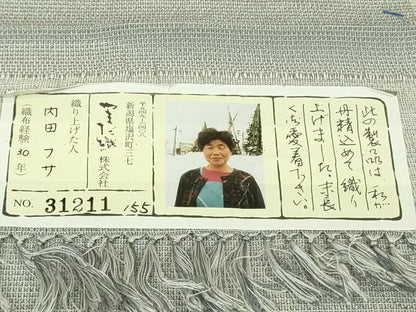 此の製品は私が
丹精込めて織り
上げました。末長
くご愛着下さい。
〒九四九-六四〇八
新潟県塩沢町三七
やまだ織 株式会社
織り上げた人
内田フサ
(織布経験30年)
NO. 31211 155